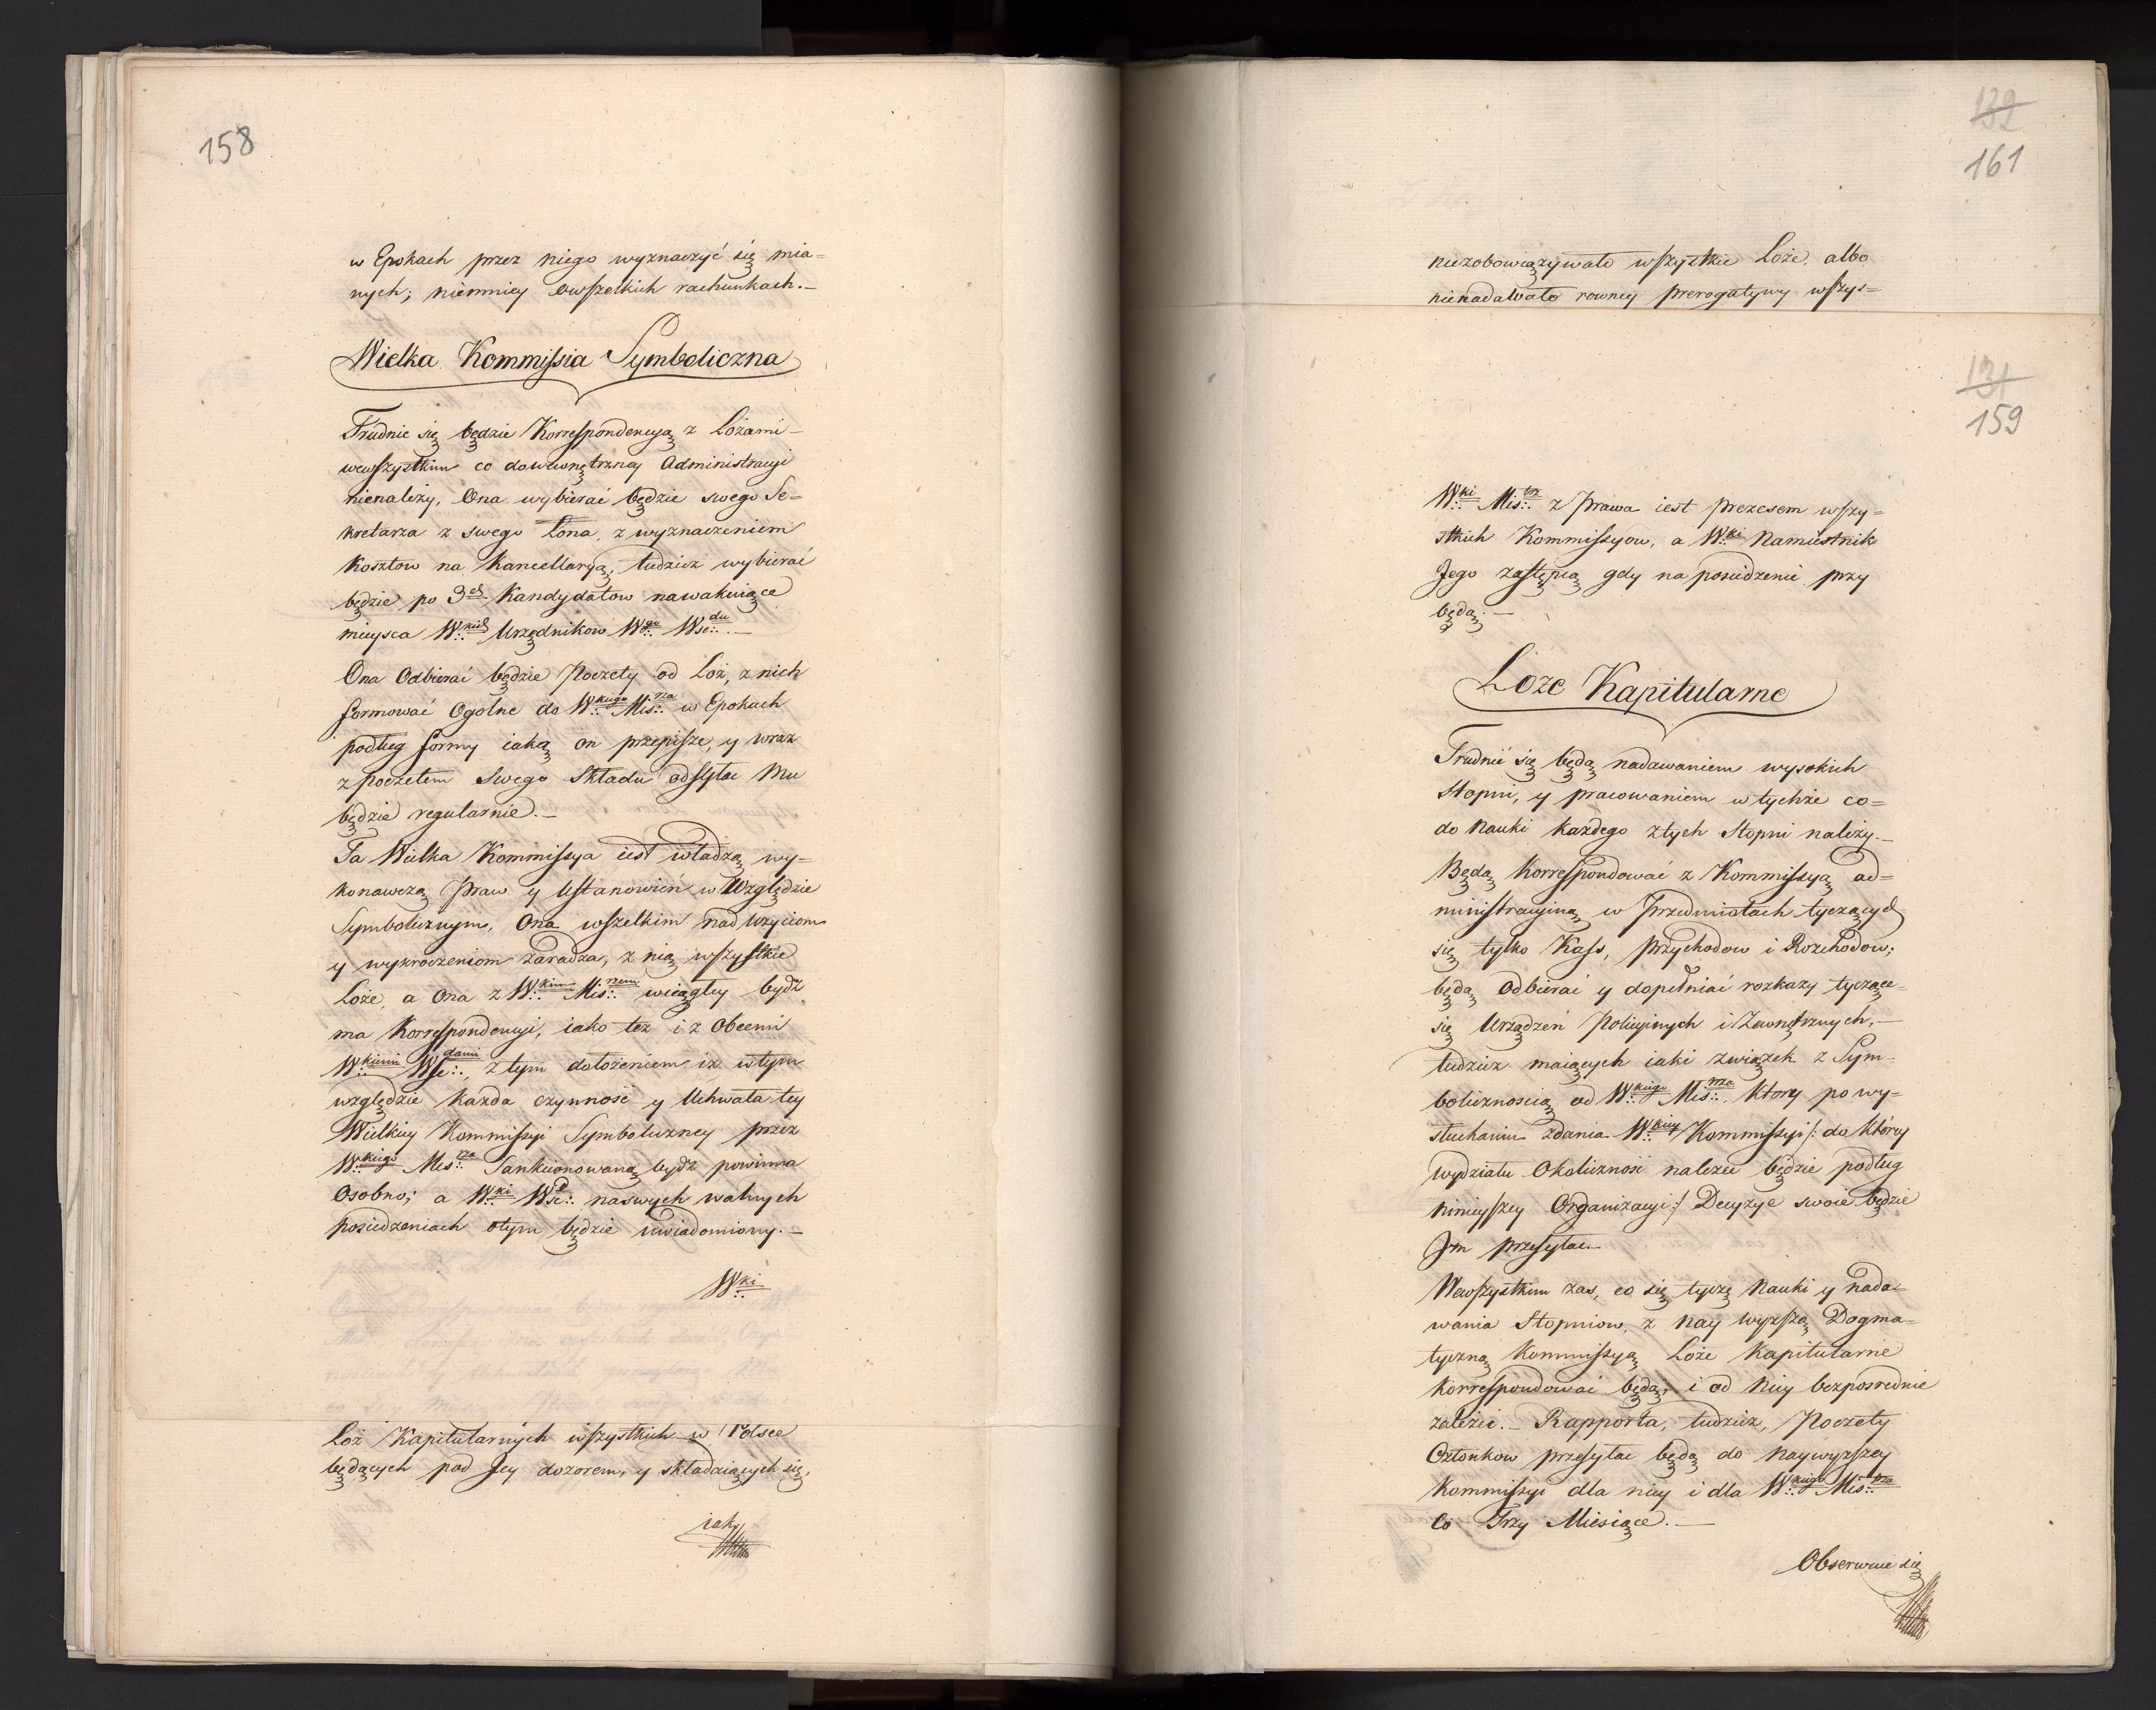 158
w Epokach przez niego wyznaczyć się mia=
nych; niemniey o wszelkich rachunkach.—
Wielka Kommissia Symboliczna
Trudnić się będzie Korrespondencyą z Lożami
wewszystkim co dowewnętrzney Administracyi
nienależy, Ona wybierać będzie swego Se=
kretarza z swego Łona, z wyznaczeniem
Kosztow na Kancellaryą, tudzież wybierać
będzie po 3ch Kandydatow nawakuiące
mieysca W:kich Urzędnikow W:go Wsc:du.—
Ona Odbierać będzie Poczety od Loż, z nich
formować Ogolne do W:kiego Mis:rza w Epokach
podług formy iaką on przepisze, y wraz
z poczetem Swego Składu odsyłac Mu
będzie regularnie.—
Ta Wielka Kommissya iest władzą wy=
konawczą Praw y Ustanowień w Względzie
Symbolicznym, Ona wszelkim nad Użyciom
y wykroczeniom Zaradza, z nią wszystkie
Loże, a Ona z W:kim Mis:rzem wiągłey bydź
ma Korrespondencyi, iako też i z Obcemi
W:kiemi Wsc:dami, ztym dołożeniem iż wtym
względzie Każda czynność y Uchwała tey
Wielkiey Kommissyi Symboliczney przez
W:kiego Mis:rza Sankcionowaną bydź powinna
Osobno; a W:ki Wsc:d naswych walnych
posiedzeniach otym będzie uwiadomiony.—
W:ki
Loż Kapitularnych wszystkich w Polsce
będących pod Jey dozorem, y składaiących się,
iak
132
161
niezobowiązywało wszystkie Loże albo
nienadawało rowney prerogatywy wszys=
131
159
W:ki Mis:trz z Prawa iest prezesem wszy=
stkich Kommissyow, a W:ki Namiestnik
Jego zastępcą gdy na posiedzenie przy
będą.—
Loże Kapitularne
Trudnić się będą nadawaniem wysokich
Stopni, y pracowaniem wtychże co=
do Nauki każdego ztych Stopni należy.—
Będą Korrespondować z Kommissyą ad=
ministracyiną w Przedmiotach tyczących
się tylko Kass, Przychodow i Rozchodow;
będą Odbierać y dopełniać rozkazy tyczące
się Urządzeń Policyinych i Zewnętrznych,—
tudzież maiących iaki związek z Sym=
bolicznoscią od W:kiego Mis:rza, Ktory po wy=
słuchaniu zdania W:kiey Kommissyi /: do Którey
wydziału Okoliczność należeć będzie podług
ninieyszey Organizacyi :/ Decyzye swoie będzie
Im przesyłac.—
Wewszystkim zas, co się tyczę Nauki y nada=
wania Stopniow, z Nay wyższą Dogma=
tyczną Kommissyą Loże Kapitularne
Korrespondować będą, i od Niey bezposrednie
zależeć.— Rapporta, tudzież, Poczety
Członkow przesyłac będą do Naywyższey
Kommissyi dla niey i dla W:kiego Mis:rza
Co Trzy Miesiące.—
Obserwuie się